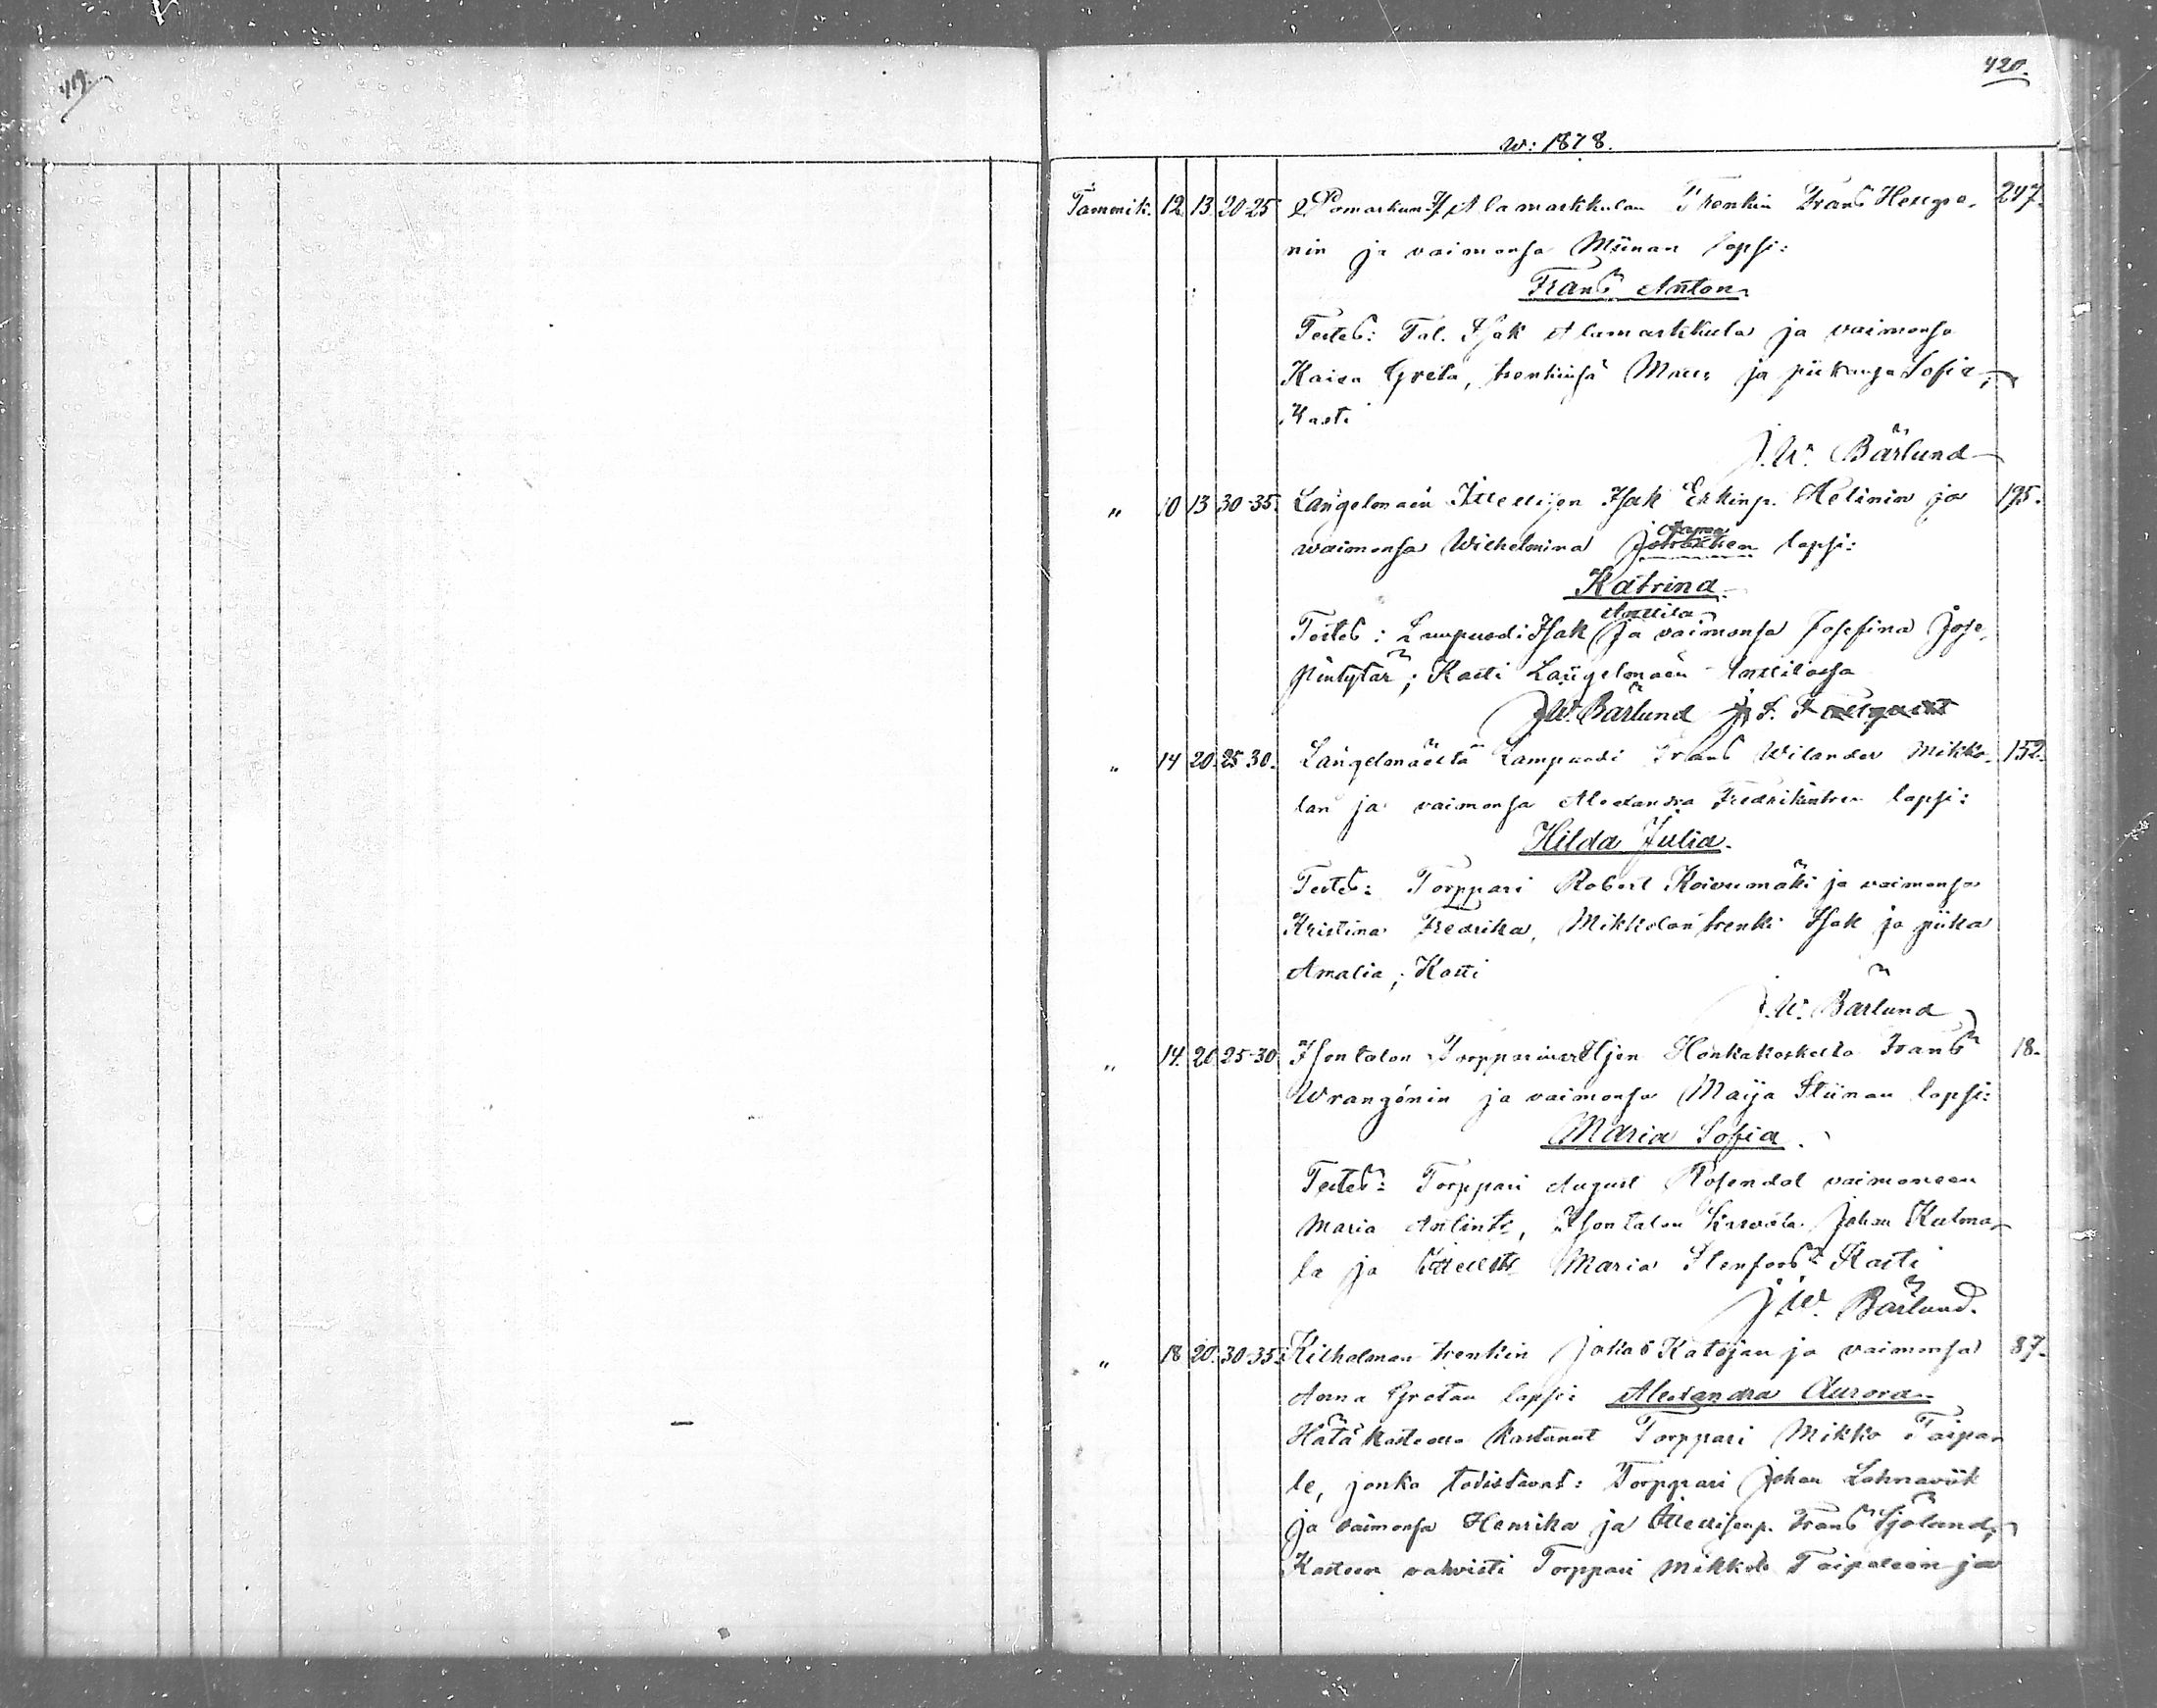 419.
420.
w: 1878.
Tammik. 12 13 20-25 Pomarkun Alamarkkulan Trenkin Frans Hesspe- 247.
nin ja vaimonsa Miinan lapsi:
Frans Anton
Testes: Tal. Isak Alamarkkula ja vaimonsa
Kaisa Greta, trenkinsä ja piikansa Sofia;
Kasti
J.W. Bärlund
" 10 13 30-35 Längelmäen Itsellisen Isak Erkinp. Helinin ja 195.
waimonsa Wilhelmina lapsi:
Katrina
Anttila
Testes: Lampuodi Isak ja vaimonsa Josefina Jose-
pintytär; Kasti Längelmäen Anttilassa
J.W. Bärlund
" 14 20. 25 30. Längelmäeltä Lampuodi Frans Wilander Mikko- 152.
lan ja vaimonsa Alexandra Fredrikintren lapsi:
Hilda Julia.
Testes: Torppari Robert Koivumäki ja vaimonsa
Kristina Fredrika, Mikkolan trenki Isak ja piika
Amalia; Kasti
J.W. Bärlund
" 14. 20 25-30 Isontalon Honkakoskelta Frans 18.
Wrangénin ja vaimonsa Maija Stiinan lapsi:
Maria Sofia.
Testes: Torppari August Rosendal vaimoneen
Maria Antintr, Isontalon Johan Kulma-
la ja Maria Stenfors Kasti
J.W. Bärlund.
" 18 20. 30-35. Kilholman trenkin Jakas Katajan ja vaimonsa 87.
Anna Gretan lapsi: Alexandra Aurora
Hätäkasteessa kastanut Torppari Mikko Taipa-
le, jonka todistavat: Torppari Johan Lahnaviik
ja vaimonsa Henrika ja Itsellisenp. Frans Sjölund;
Kasteen vahvisti Torppari Mikko Taipaleen ja